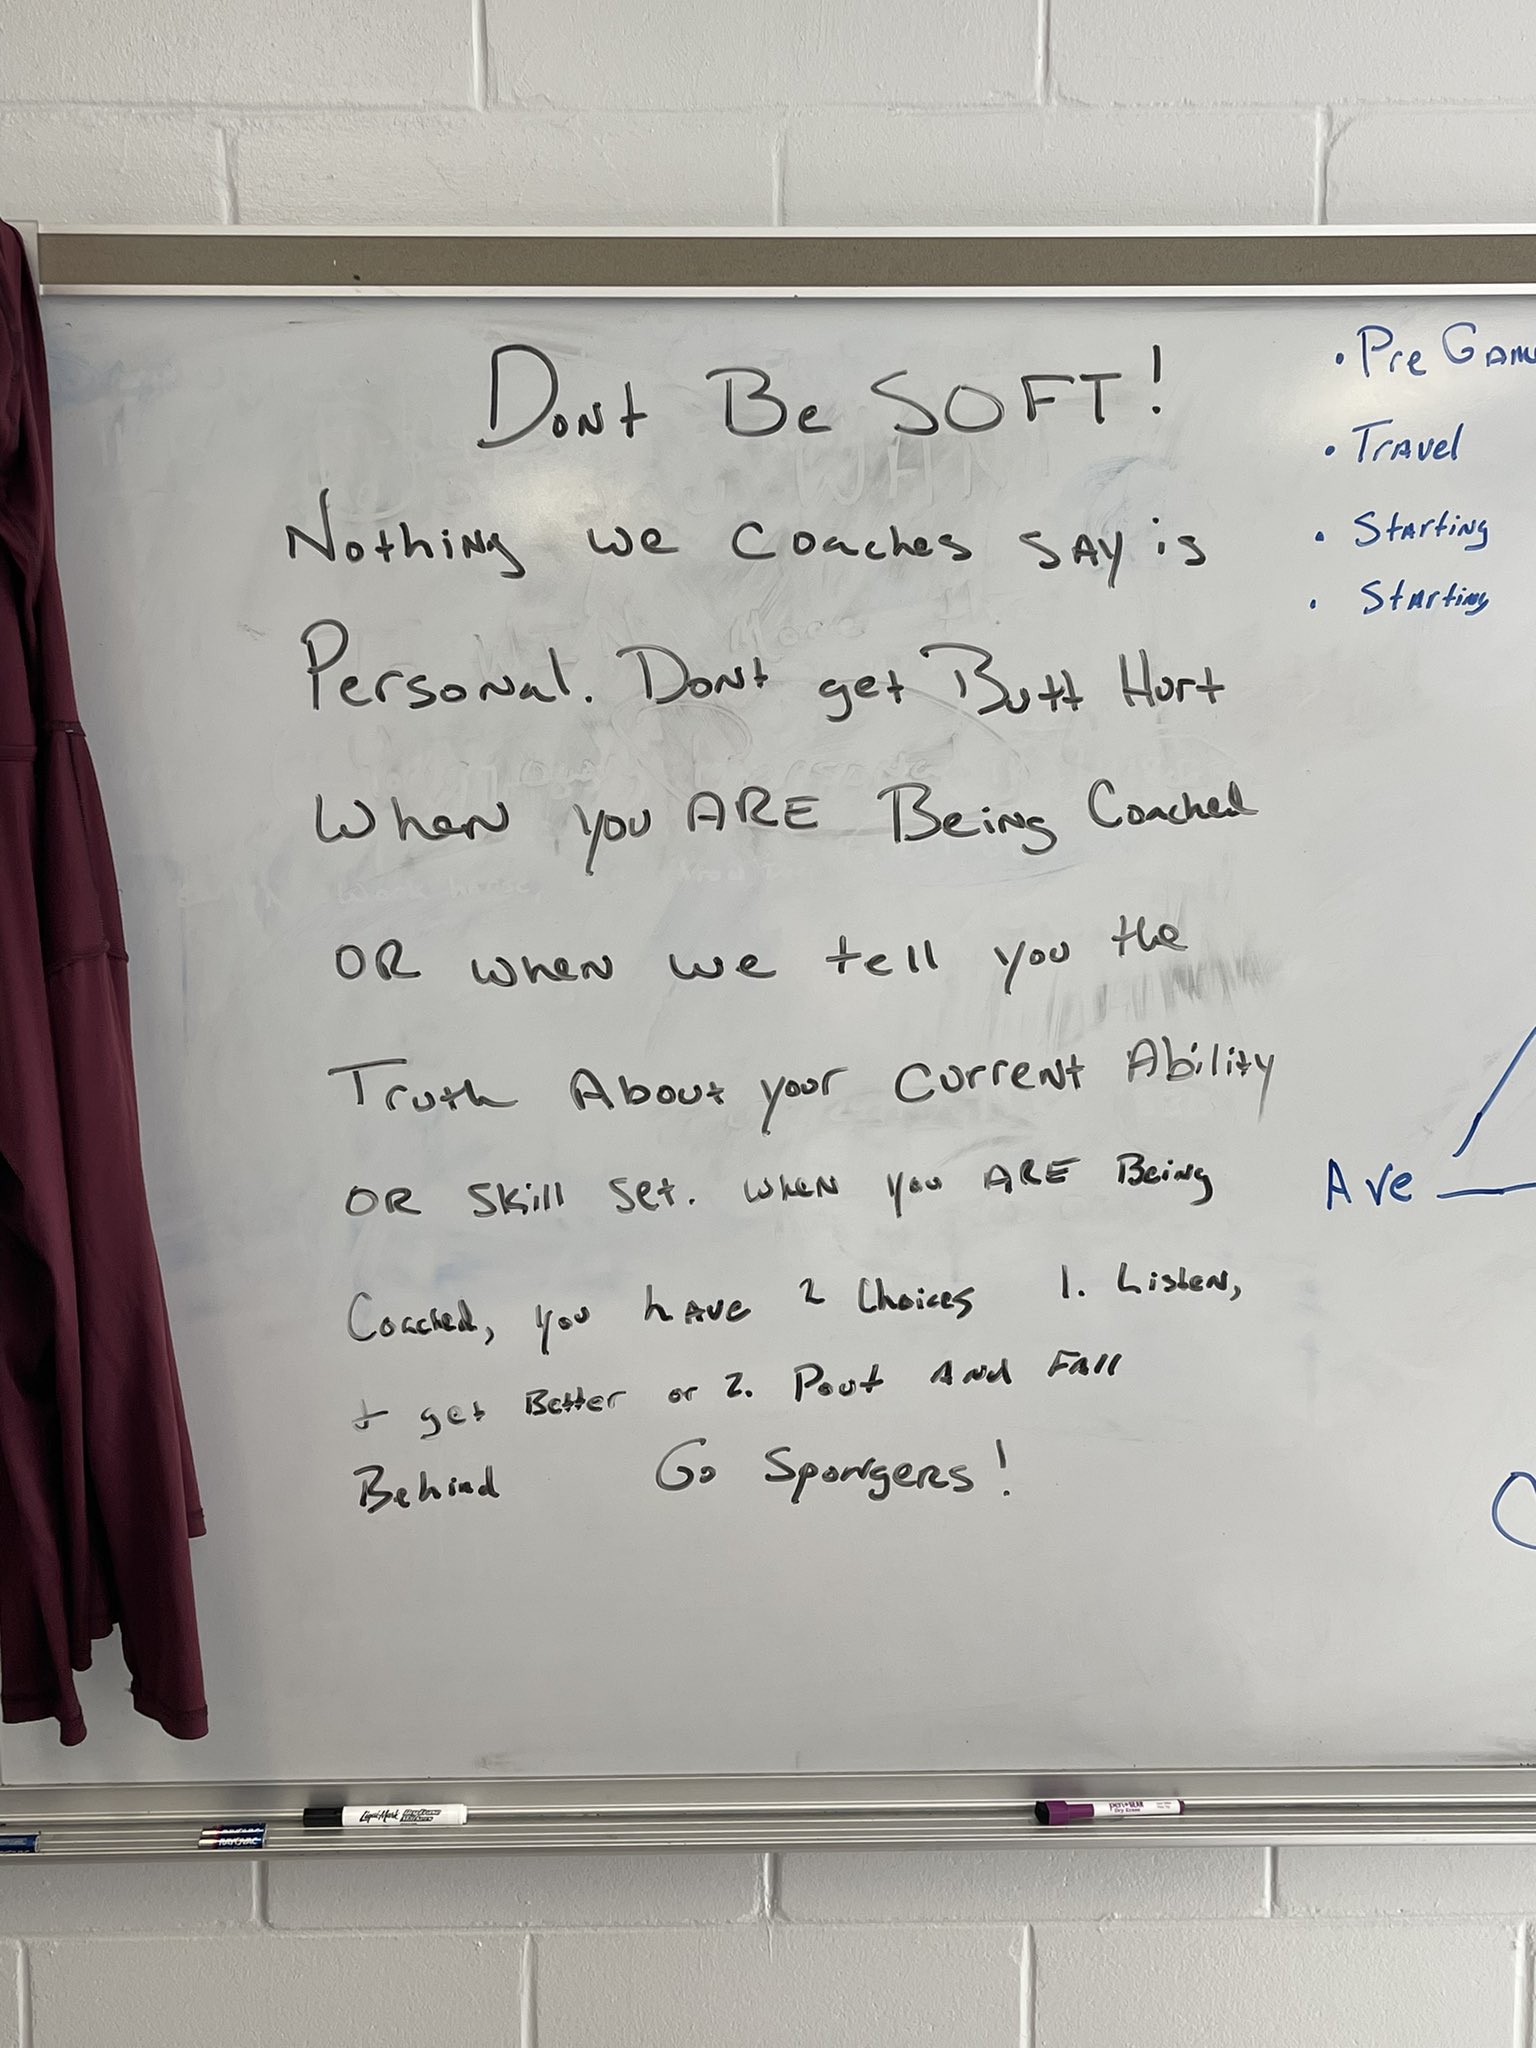 Dont Be SOFT!
Nothing we coaches say is
Personal. Dont get Butt Hurt
When you ARE Being Coached
OR when we tell you the
Truth About your current Ability
OR skill set. when you ARE Being
Coached, you have 2 choices 1. Listen,
+ get Better or 2. Pout and Fall
Behind Go Spongers!
• Pre Gam
• Travel
• Starting
• Starting
Ave
Liqui-Mark
RAYOVAC
Dry Erase